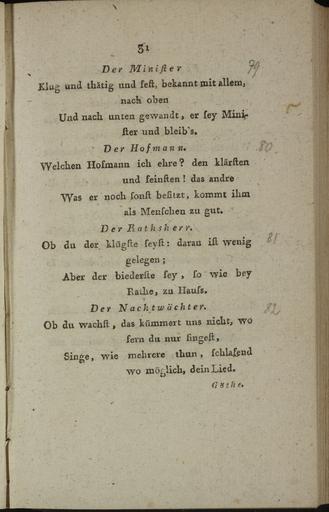 31
Der Miniſter 79
Klug und thätig und feſt, bekannt mit allem,
nach oben
Und nach unten gewandt, er ſey Mini-
ſter und bleib's.
Der Hofmann. 80
Welchen Hofmann ich ehre? den klärſten
und feinſten! das andre
Was er noch ſonſt beſitzt, kommt ihm
als Menſchen zu gut.
Der Rathsherr. 81
Ob du der klügſte ſeyſt: daran iſt wenig
gelegen;
Aber der biederſte ſey, ſo wie bey
Rathe, zu Hauſs.
Der Nachtwächter. 82
Ob du wachſt, das kümmert uns nicht, wo
fern du nur ſingeſt,
Singe, wie mehrere thun, ſchlafend
wo möglich, dein Lied.
Göthe.